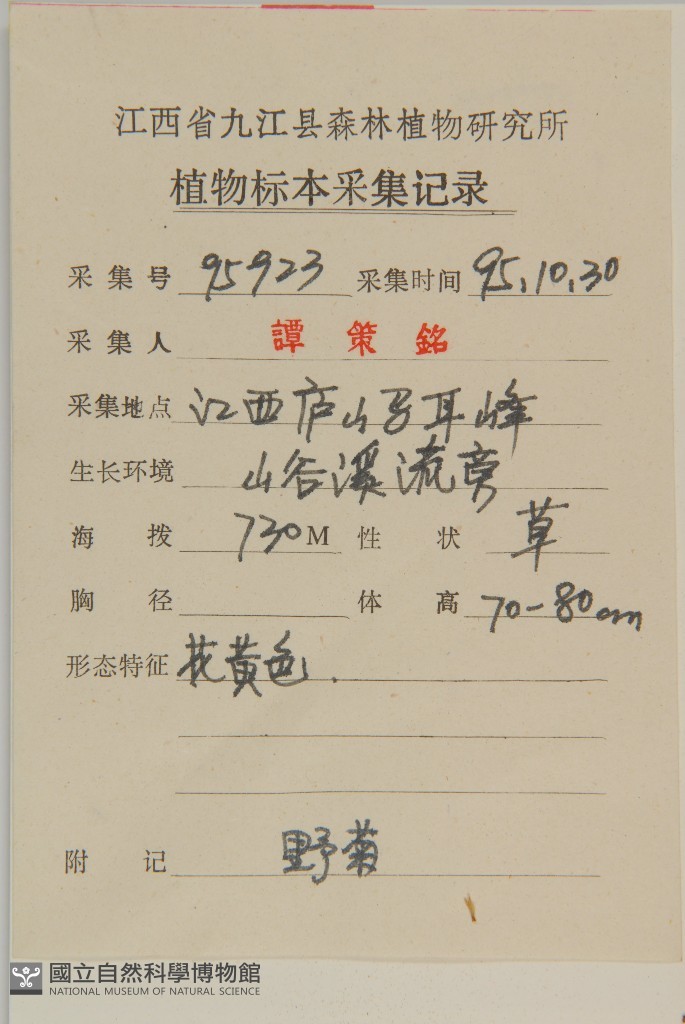 江西省九江县森林植物研究所
植物标本采集记录
采集号 95923 采集时间 95.10.30
采集人 譚策銘
采集地点 江西庐山马耳峰
生长环境 山谷溪流旁
海拨 730M 性状 草
胸径 体高 70-80cm
形态特征 花黄色.
附记 野菊
國立自然科學博物館
NATIONAL MUSEUM OF NATURAL SCIENCE